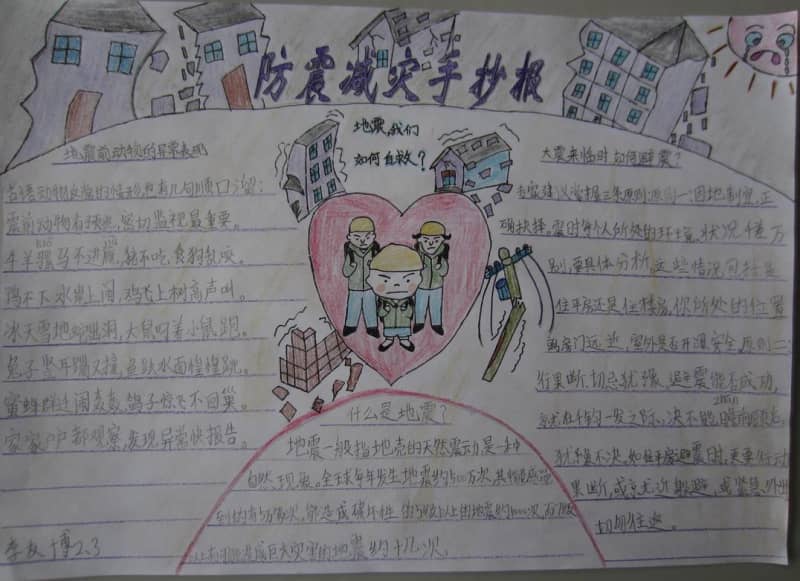 防震减灾手抄报
地震,我们
如何自救?
地震前动物的异常表现
震前动物有预兆,密切监视最重要。
牛羊骡马不进厩,猪不吃食狗乱咬。
鸭不下水岸上闹,鸡飞上树高声叫。
冰天雪地蛇出洞,大鼠叼着小鼠跑。
兔子竖耳蹦又撞,鱼跃水面惶惶跳。
蜜蜂群迁闹轰轰,鸽子惊飞不回巢。
家家户户都观察,发现异常快报告。
李友博2.3
什么是地震?
地震一般指地壳的天然震动,是一种
自然现象。全球每年发生地震约500万次,其
到的有5万多次,能造成破坏性
成巨大灾害的地震约十几次。
大震来临时如何避震?
因地制宜,正
确抉择。震时每个人所处的环境、状况千差万
别,要具体分析,这些情况包括是
住平房还是住楼房,你所处的位置
离房门远近,室外是否开阔安全。原则二:
行果断,切忌犹豫。避震能否成功,
就在千钧一发之际,决不能瞻前顾后,
犹豫不决。如住平房避震时,更要行动
果断,或就近躲避,或紧急外出
切勿往返。